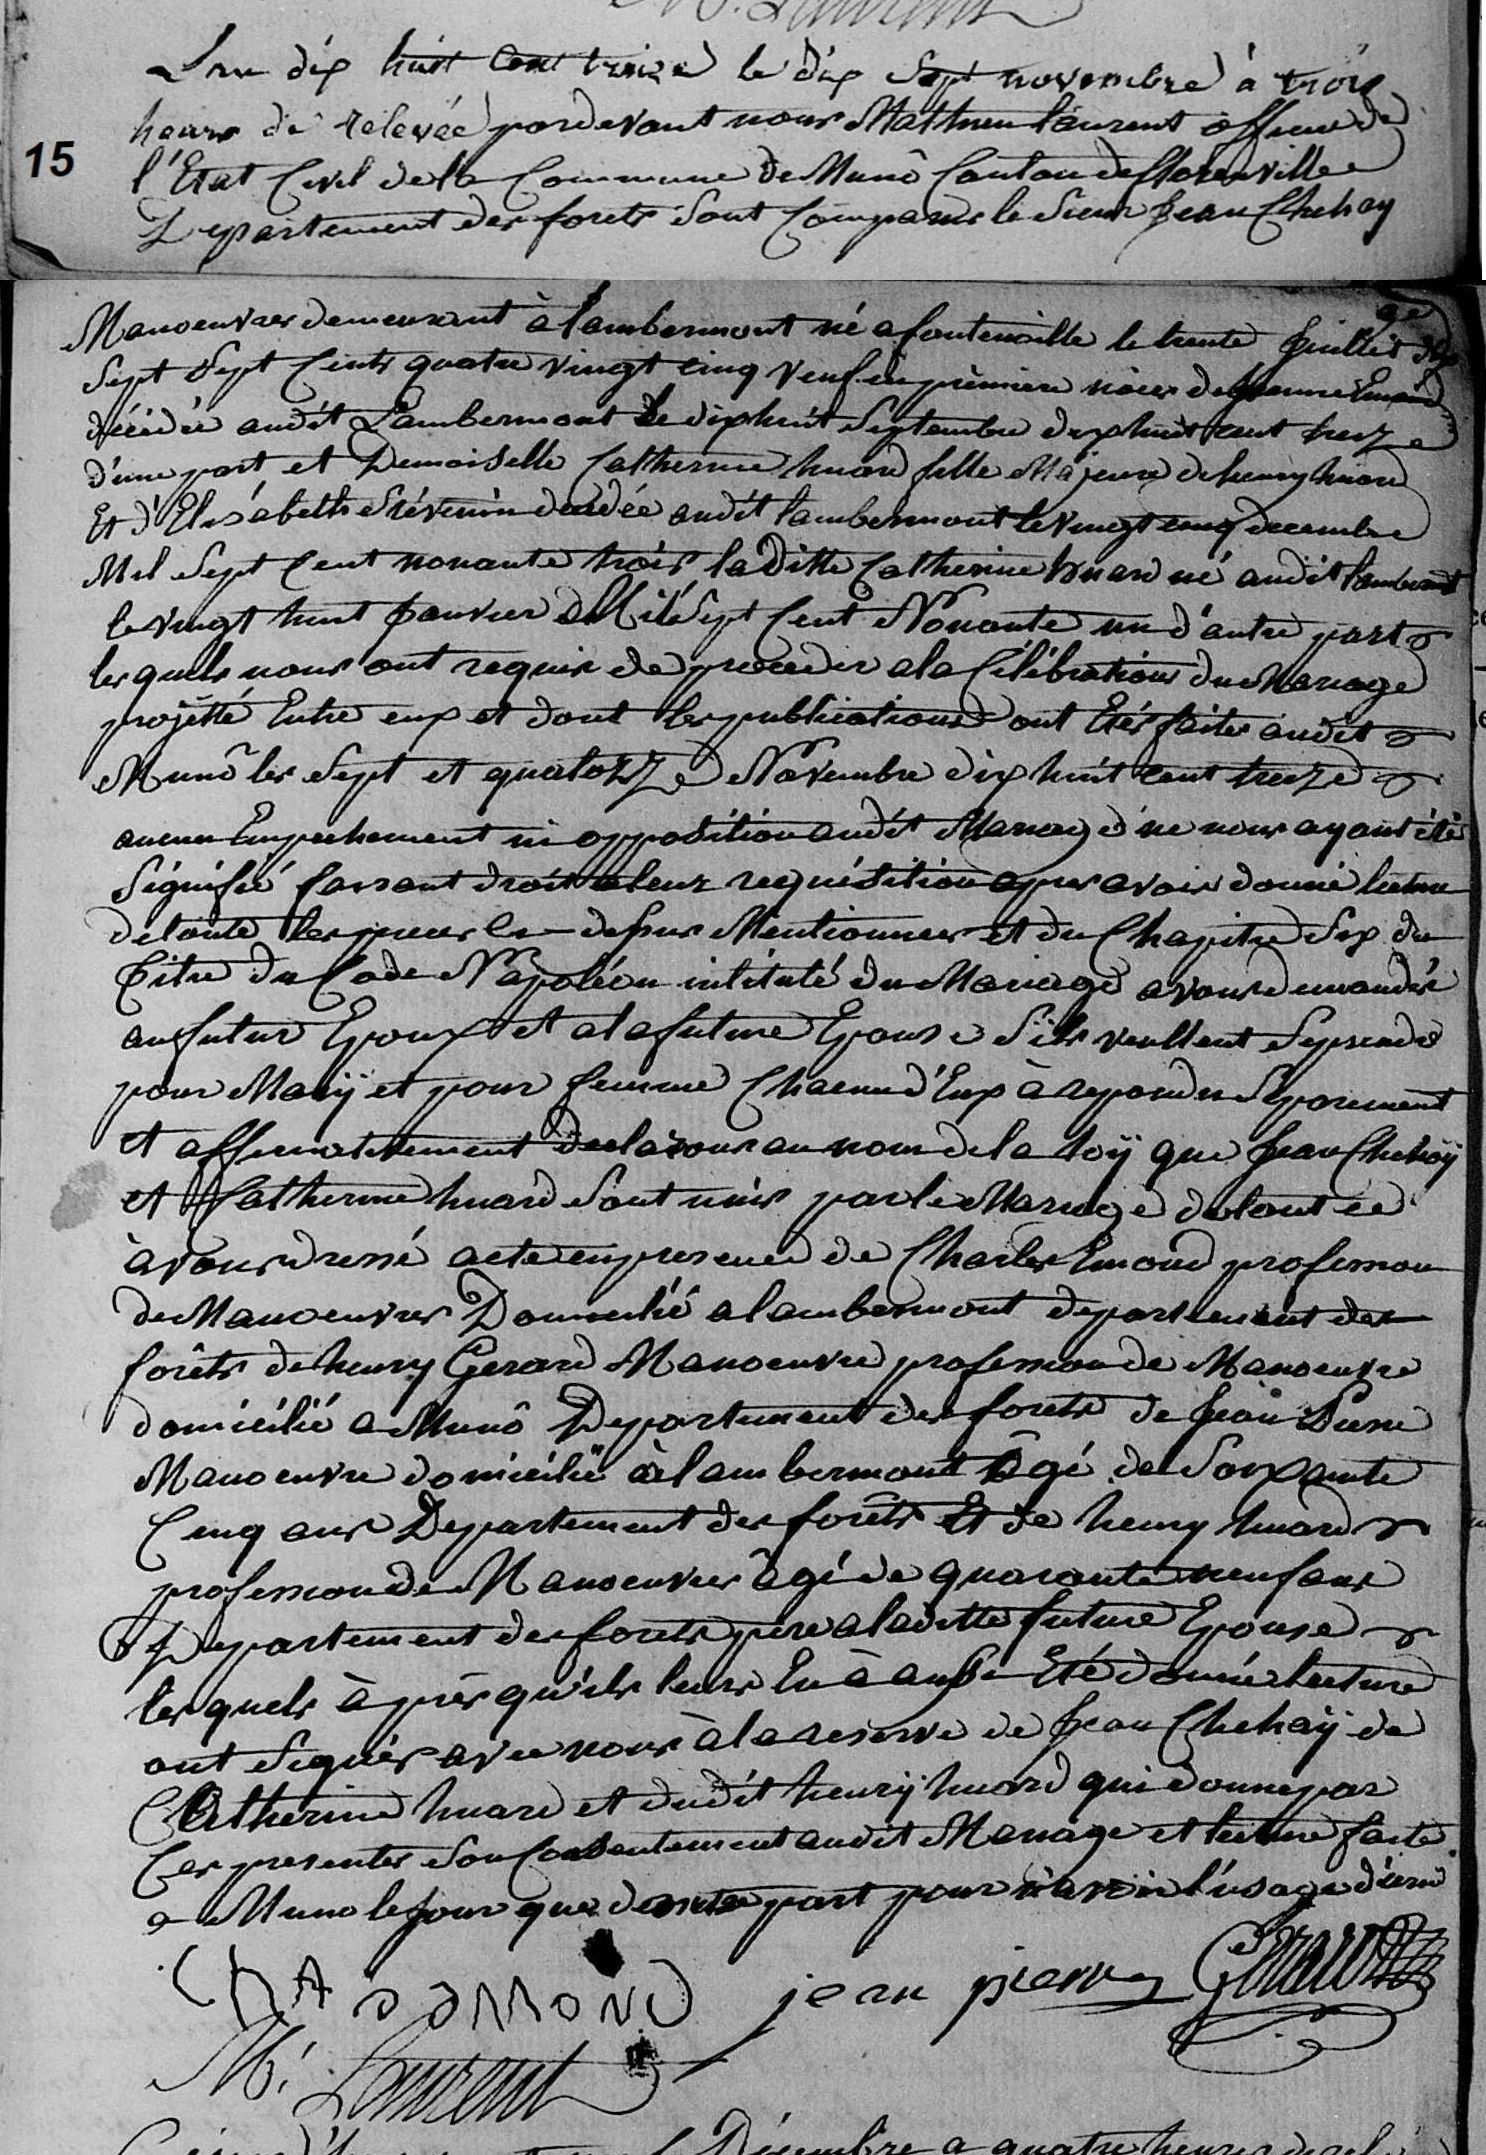 M. Laurent
L'an dix huit Cent treize le dix Sept novembre à trois
heures de relevée pardevant nous Mathieu laurent officier de
15
l'Etat Civil de la Commune de Munô Canton de florenville
Departement des forets Sont Comparus le Sieur Jean Chehay
Manoeuvrer demeurant à lambermont né a fontenoille le trente Juillet dix
Sept Sept Cents quatre vingt cinq veuf en premiere nôces de Jeanne Emond
décédée audit Lambermont le dix huit Septembre dix huit cent treize
d'une part et Demoiselle Catherine huard fille Majeure de henry huard
Et d'Elisabeth Stévenin décédée audit lambermont le vingt cinq decembre
Mil Sept Cent nonante trois la ditte Catherine huard né audit lambermont
le vingt huit Janvier Mil Sept Cent Nonante un d'autre part
lesquels nous ont requis de proceder a la Célébration du Mariage
projetté Entre eux et dont les publications ont Etés faites audit
Munô les Sept et quatorze Novembre dix huit cent treize
aucun Empechement ni opposition audit Mariage ne nous ayant été
Signifié faisant droit a leur requisition apres avoir donné lecture
de toute les pieces ci-dessus Mentionnées et du Chapitre Six du
Titre du Code Napoléon intitulé du Mariage avons demandés
au futur Epoux et a la future Epouse S'ils veullent Se prendre
pour Mary et pour femme Chacun d'Eux à repondu Séparement
et affirmativement declarons au nom de la Loÿ que Jean Chehaÿ
et Catherine huard Sont unis par le Mariage de tout ce
avons dressé acte en presence de Charles Emond profession
de Manoeuvrer Domicilié a lambermont departement des
forêts de henry Gerard Manoeuvre profession de Manoeuvre
domicilié a Munô Departement des forets de Jean Pierre
Manoeuvre domicilié à lambermont âgé de Soixante
Cinq ans Departement des forêts Et de henry huard
profession de Manoeuvrer âgé de quarante neuf ans
Departement des forets pere a laditte future Epouse
lesquels àprès qu'ils leurs En à aussi Eté donnée lecture
ont Signés avec nous à la reserve de Jean Chehaÿ de
Catherine huard et dudit henrÿ huard qui donne par
Ces presentes Son Consentement audit Mariage et lecture faite
a Muno le jour que part pour n'avoir l'usage d'ecrire
ChA
jean pierre Gerard
M. Laurent
Décembre a quatre heures de relevée